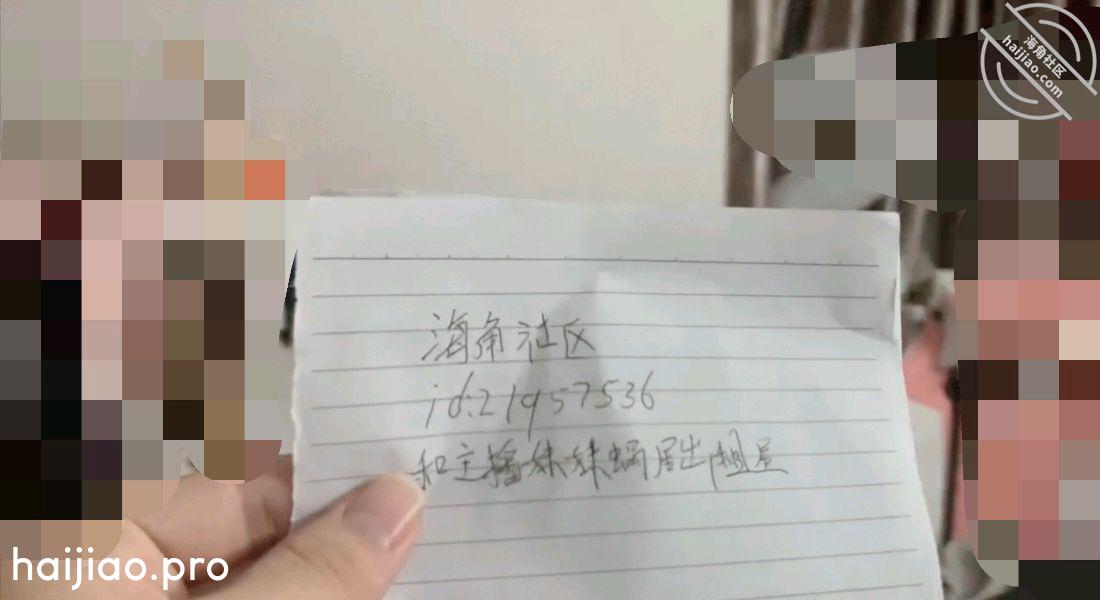 海角社区
haijiao.com
海角社区
id:21957536
和主播妹妹蜗居出租屋
haijiao.pro